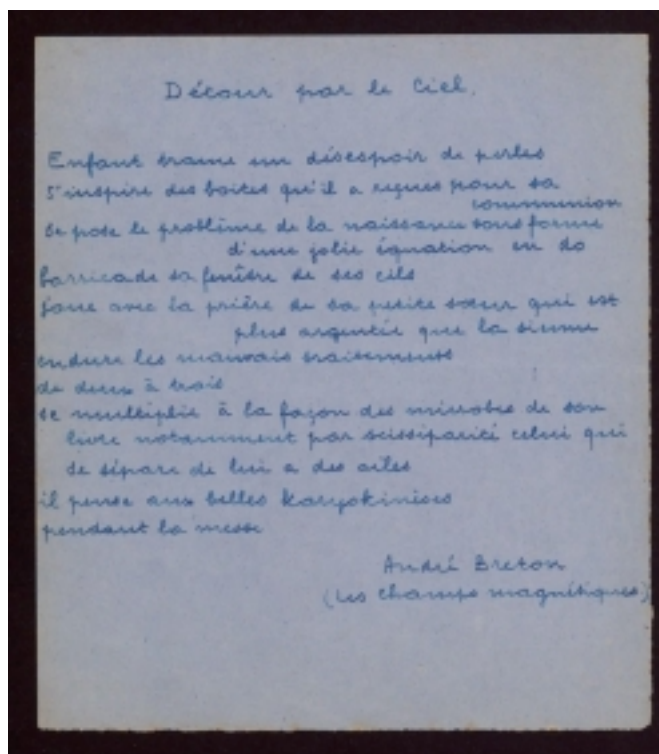 Détour par le Ciel.
Enfant trame un désespoir de perles
S'inspire des boites qu'il a reçues pour sa
communion
se pose le problème de la naissance sous forme
d'une jolie équation en do
barricade sa fenêtre de ses cils
joue avec la prière de sa petite sœur qui est
plus argentée que la sienne
endure les mauvais traitements
de deux à trois
se multiplie à la façon des microbes de son
livre notamment par scissiparité celui qui
se sépare de lui a des ailes
il pense aux belles karyokinèses
pendant la messe
André Breton
(Les Champs magnétiques)